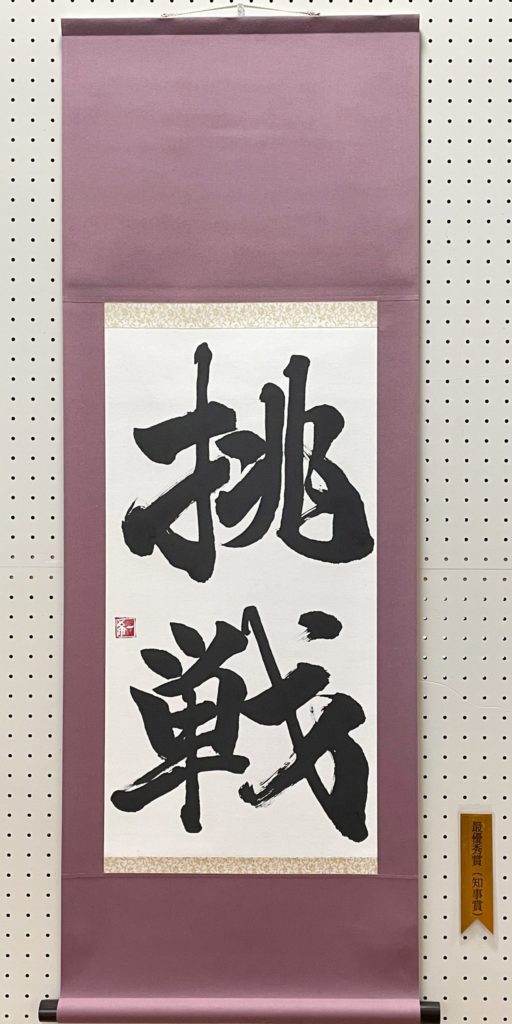 挑戦
最優秀賞(知事賞)